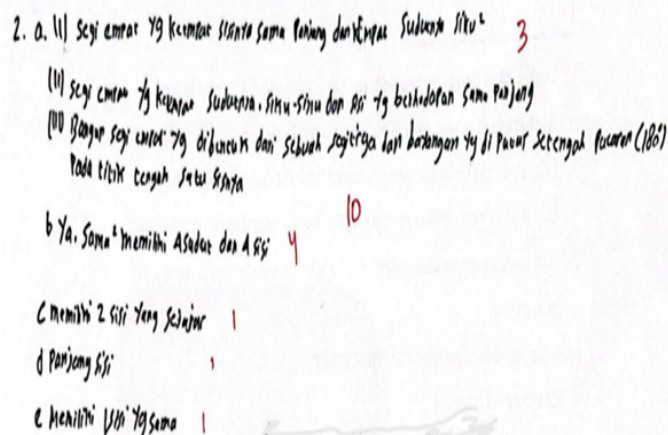 2. a. (i) segi empat yg keempat sisinya sama panjang dan keempat sudutnya siku² 3
(ii) segi empat yg keempat sudutnya siku-siku dan sisi yg berhadapan sama panjang
(iii) Bangun segi empat yg dibentuk dari sebuah segitiga dan bayangan yg di putar setengah putaran (180)
Pada titik tengah satu sisinya
10
b Ya. Sama² memiliki 4 sudut dan 4 sisi 4
c memiliki 2 sisi yang sejajar 1
d Panjang sisi 1
e Memiliki sisi yg sama 1